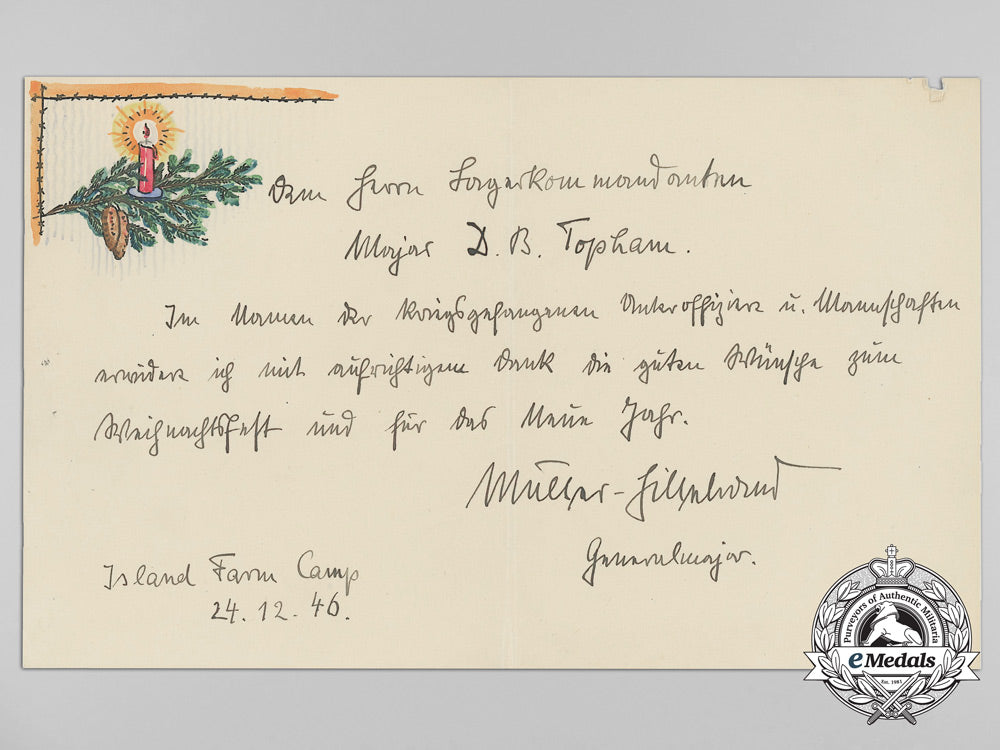 Dem Herrn Lagerkommandanten
Major D. B. Topham.
Im Namen der kriegsgefangenen Unteroffiziere u. Mannschaften
erwidere ich mit aufrichtigem Dank die guten Wünsche zum
Weihnachtsfest und für das Neue Jahr.
Müller-Hillebrand
Generalmajor.
Island Farm Camp
24. 12. 46.
Purveyors of Authentic Militaria
eMedals
Est. 1981